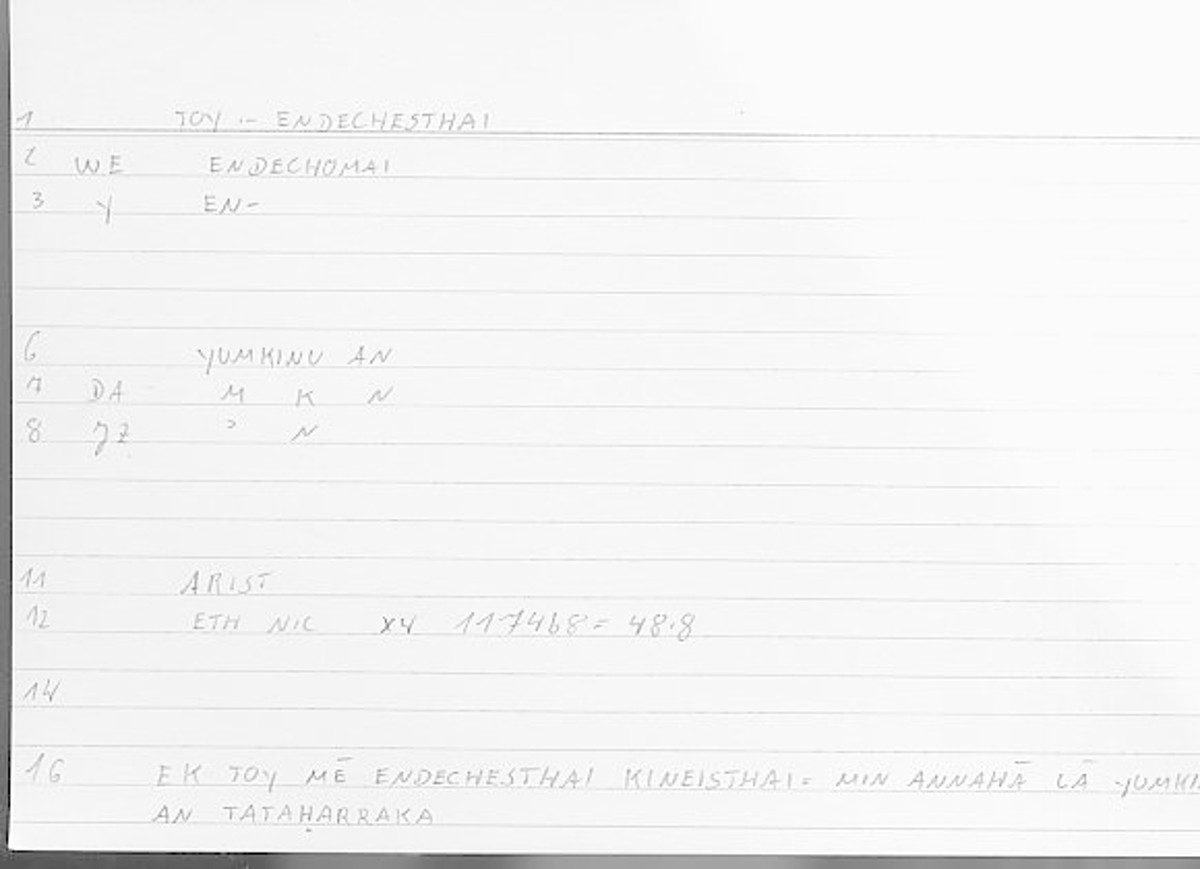 1 TOY :- ENDECHESTHAI
2 WE ENDECHOMAI
3 Y EN-
6 YUMKINU AN
7 DA M K N
8 JZ ɔ N
11 ARIST
12 ETH NIC X4 1174b8 = 48.8
14
16 EK TOY MĒ ENDECHESTHAI KINEISTHAI = MIN ANNAHĀ LĀ YUMKI
AN TATAḤARRAKA